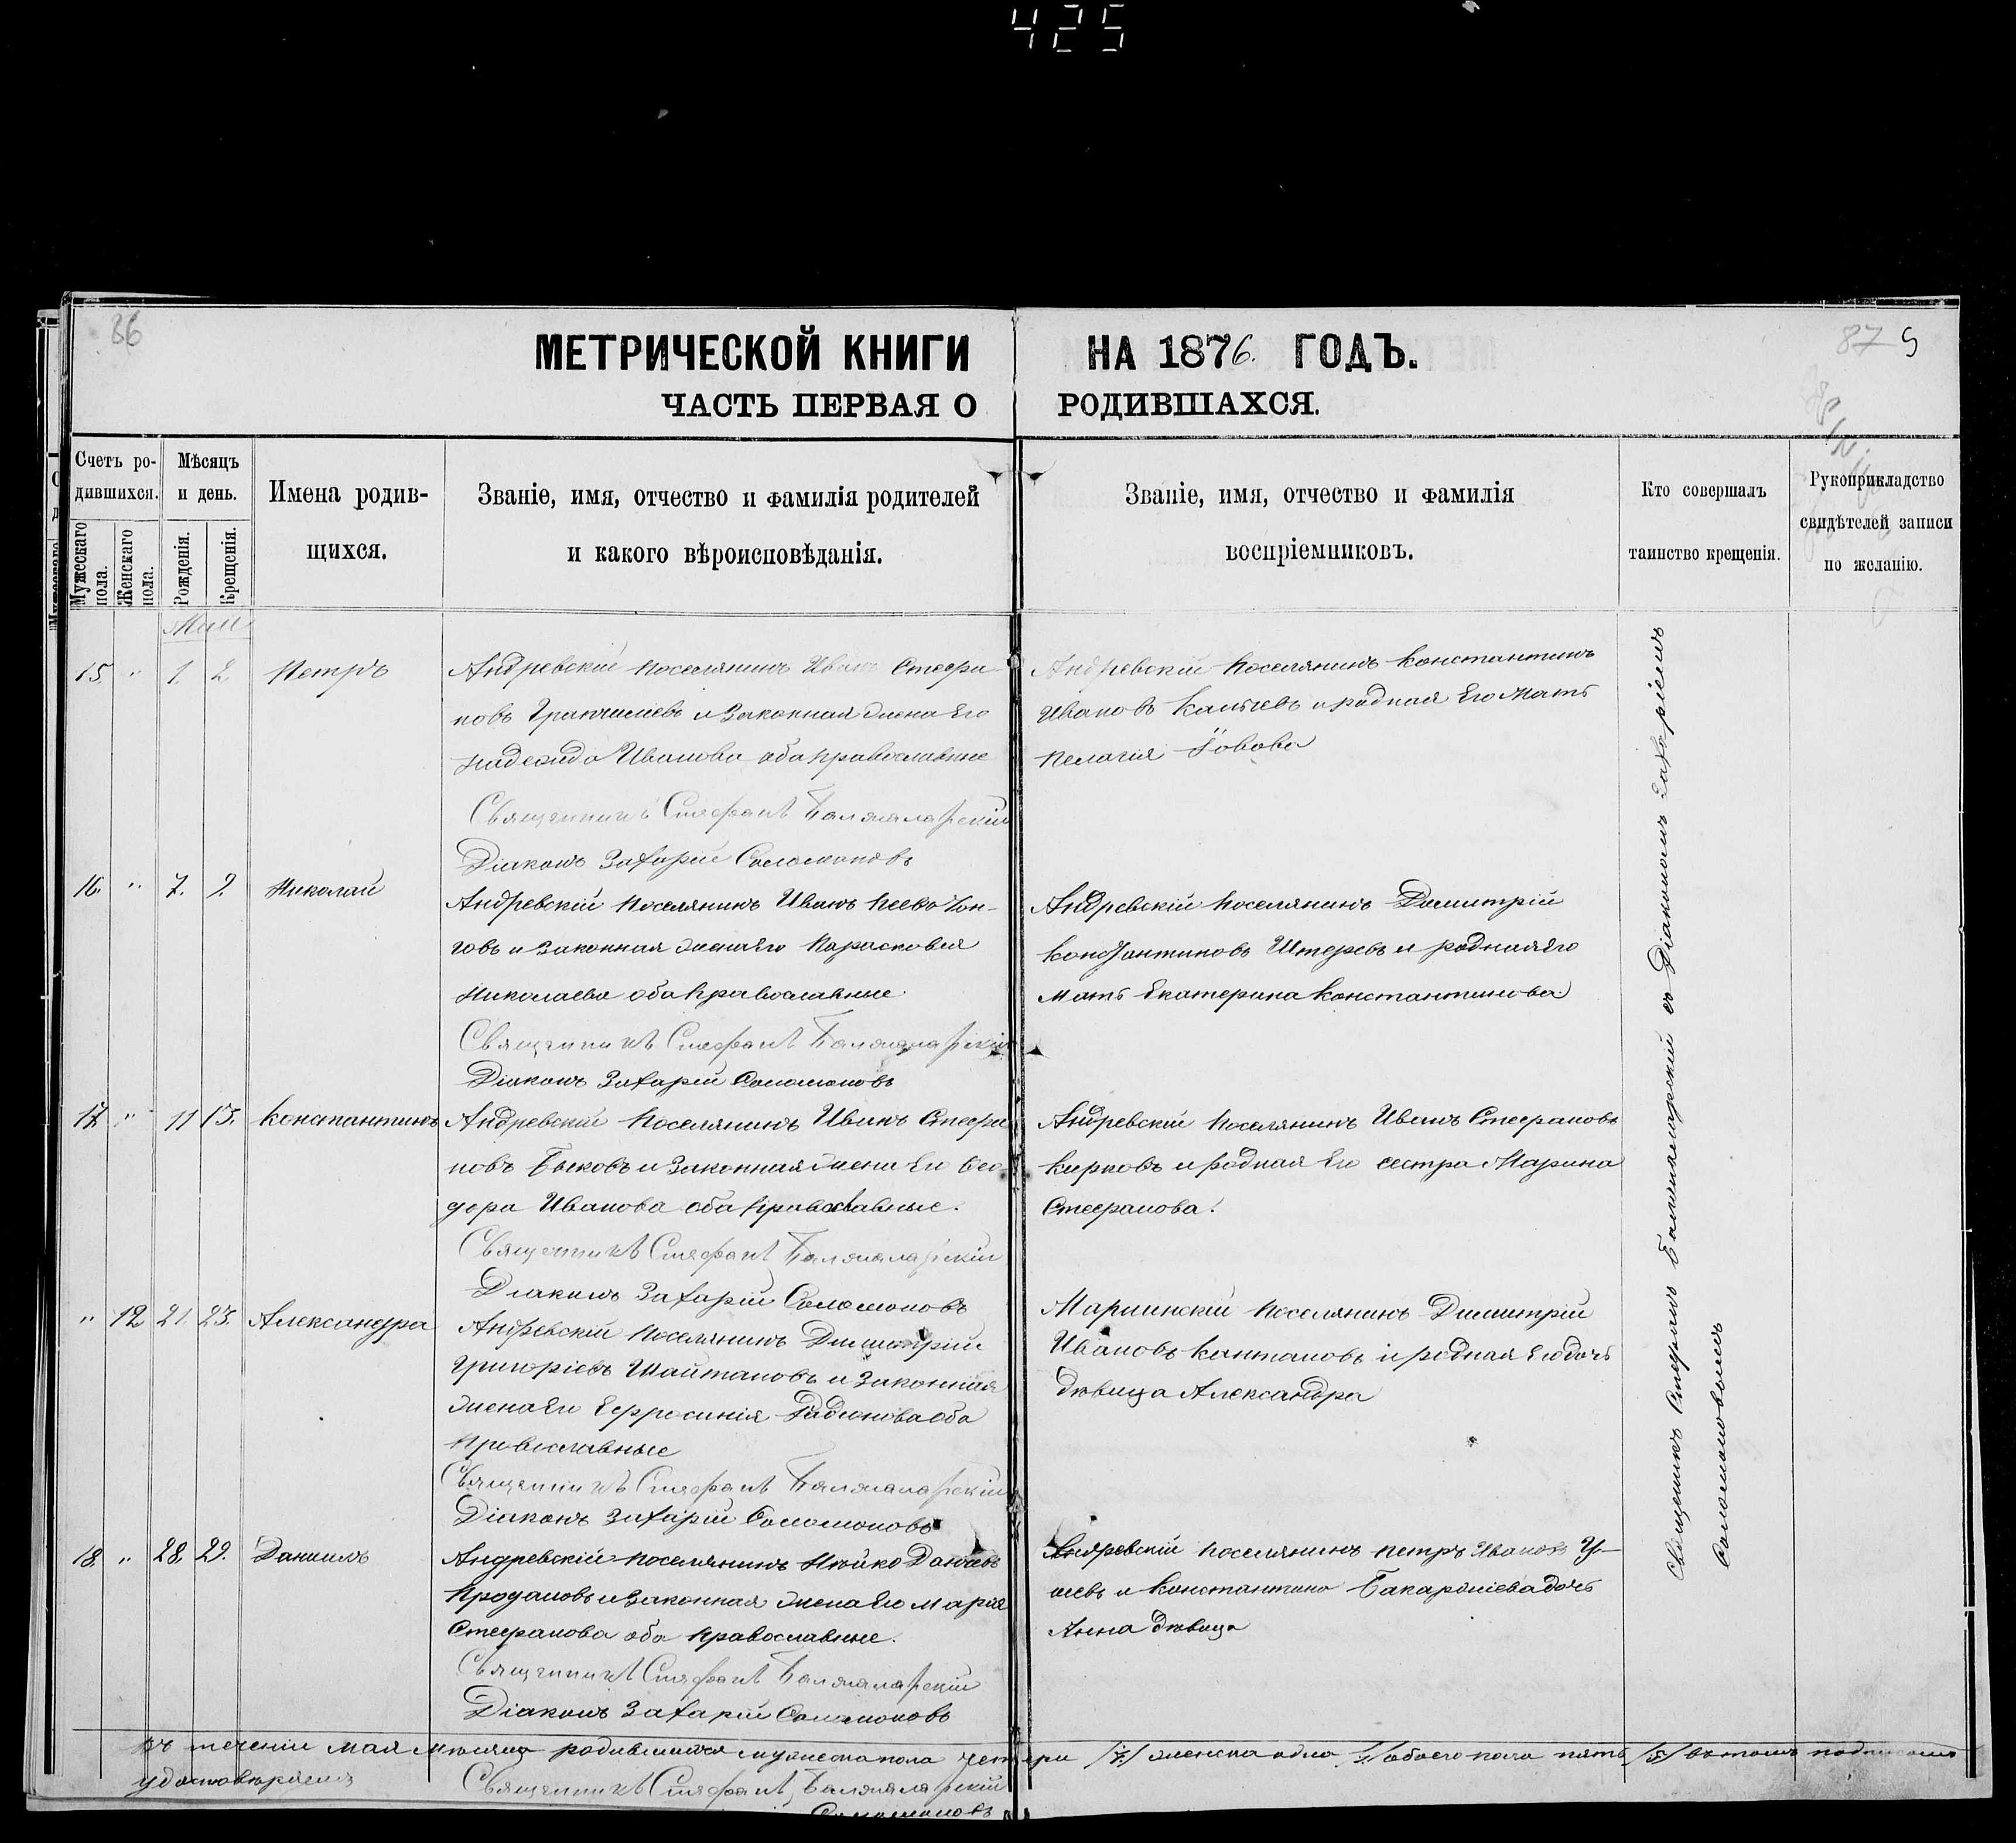 425
86
МЕТРИЧЕСКОЙ КНИГИ НА 1876. ГОДЪ.
87 9
ЧАСТЬ ПЕРВАЯ О РОДИВШАХСЯ.
Счетъ родившихся.
Мужескаго пола.
Женскаго пола.
Мѣсяцъ и день.
Рожденія.
Крещенія.
Имена родившихся.
Званіе, имя, отчество и фамилія родителей
и какого вѣроисповѣданія.
Званіе, имя, отчество и фамилія
воспріемниковъ.
Кто совершалъ
таинство крещенія.
Рукоприкладство
свидѣтелей записи
по желанію.
Маи
15 " 1. 2. Петръ
Андревскій поселянинъ Иванъ Стефа
новъ и Законная жена Его
Надежда Иванова оба православние
Священникъ Стефанъ
Діаконъ Захарій Соломоновъ
Андревскій поселянинъ Константинъ
Ивановъ Калчевъ и родная Его Мать
Пелагія
16. " 7. 9. Николай
Андревскій поселянинъ Иванъ
говъ и Законная жена Его Парасковия
Николаева оба православные.
Священникъ Стефанъ
Діаконъ Захарій Соломоновъ
Андревскій поселянинъ Димитрій
Константиновъ Штеревъ и родная Его
Мать Екатерина Константинова
17. " 11 13. Константинъ
Андревскій поселянинъ Иванъ Стефа
новъ Быковъ и Законная жена Его Ѳео
дора Иванова оба православные.
Священникъ Стефанъ
Діаконъ Захарій Соломоновъ
Андревскій поселянинъ Иванъ Стефановъ
Кирковъ и родная Его сестра Марина
Стефанова.
" 12 21. 23. Александра
Андревскій поселянинъ Димитрій
Григоріевъ Шайтановъ и Законная
жена Его Ефросинія оба
Православные
Священникъ Стефанъ
Діаконъ Захарій Соломоновъ
Мариинскій поселянинъ Димитрій
Ивановъ Кантаповъ и родная Его дочь
дѣвица Александра
18. " 28. 29. Даниилъ
Андревскій поселянинъ Нейко Данчевъ
Продановъ и Законная жена Его Марія
Стефанова оба православные.
Священникъ Стефанъ
Діаконъ Захарій Соломоновъ
Андревскій поселянинъ Петръ Ивановъ
и Константина дочь
Анна дѣвица
Священникъ Стефанъ съ Діакономъ Захаріемъ
Соломоновымъ
Въ теченіи мая мѣсяца родившихся мужеска пола четыри /4/ женска одна /1/ обоего пола пять /5/ въ томъ подписомъ
удостовѣряемъ
Священникъ Стефанъ
Соломоновъ